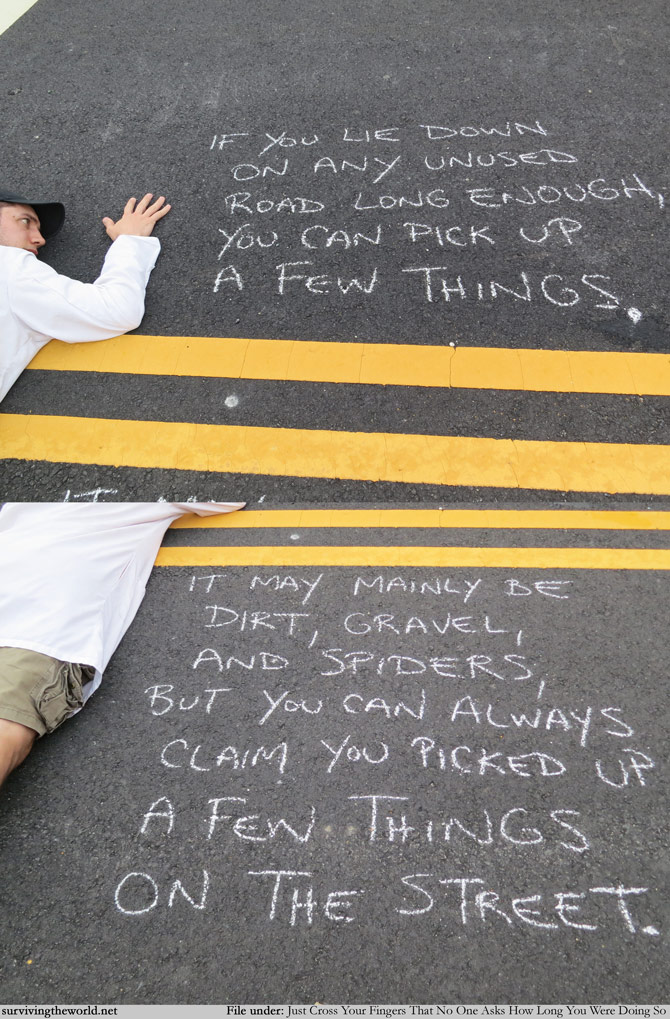 IF YOU LIE DOWN
ON ANY UNUSED
ROAD LONG ENOUGH,
YOU CAN PICK UP
A FEW THINGS.
IT MAY MAINLY BE
DIRT, GRAVEL,
AND SPIDERS,
BUT YOU CAN ALWAYS
CLAIM YOU PICKED UP
A FEW THINGS
ON THE STREET.
survivingtheworld.net File under: Just Cross Your Fingers That No One Asks How Long You Were Doing So